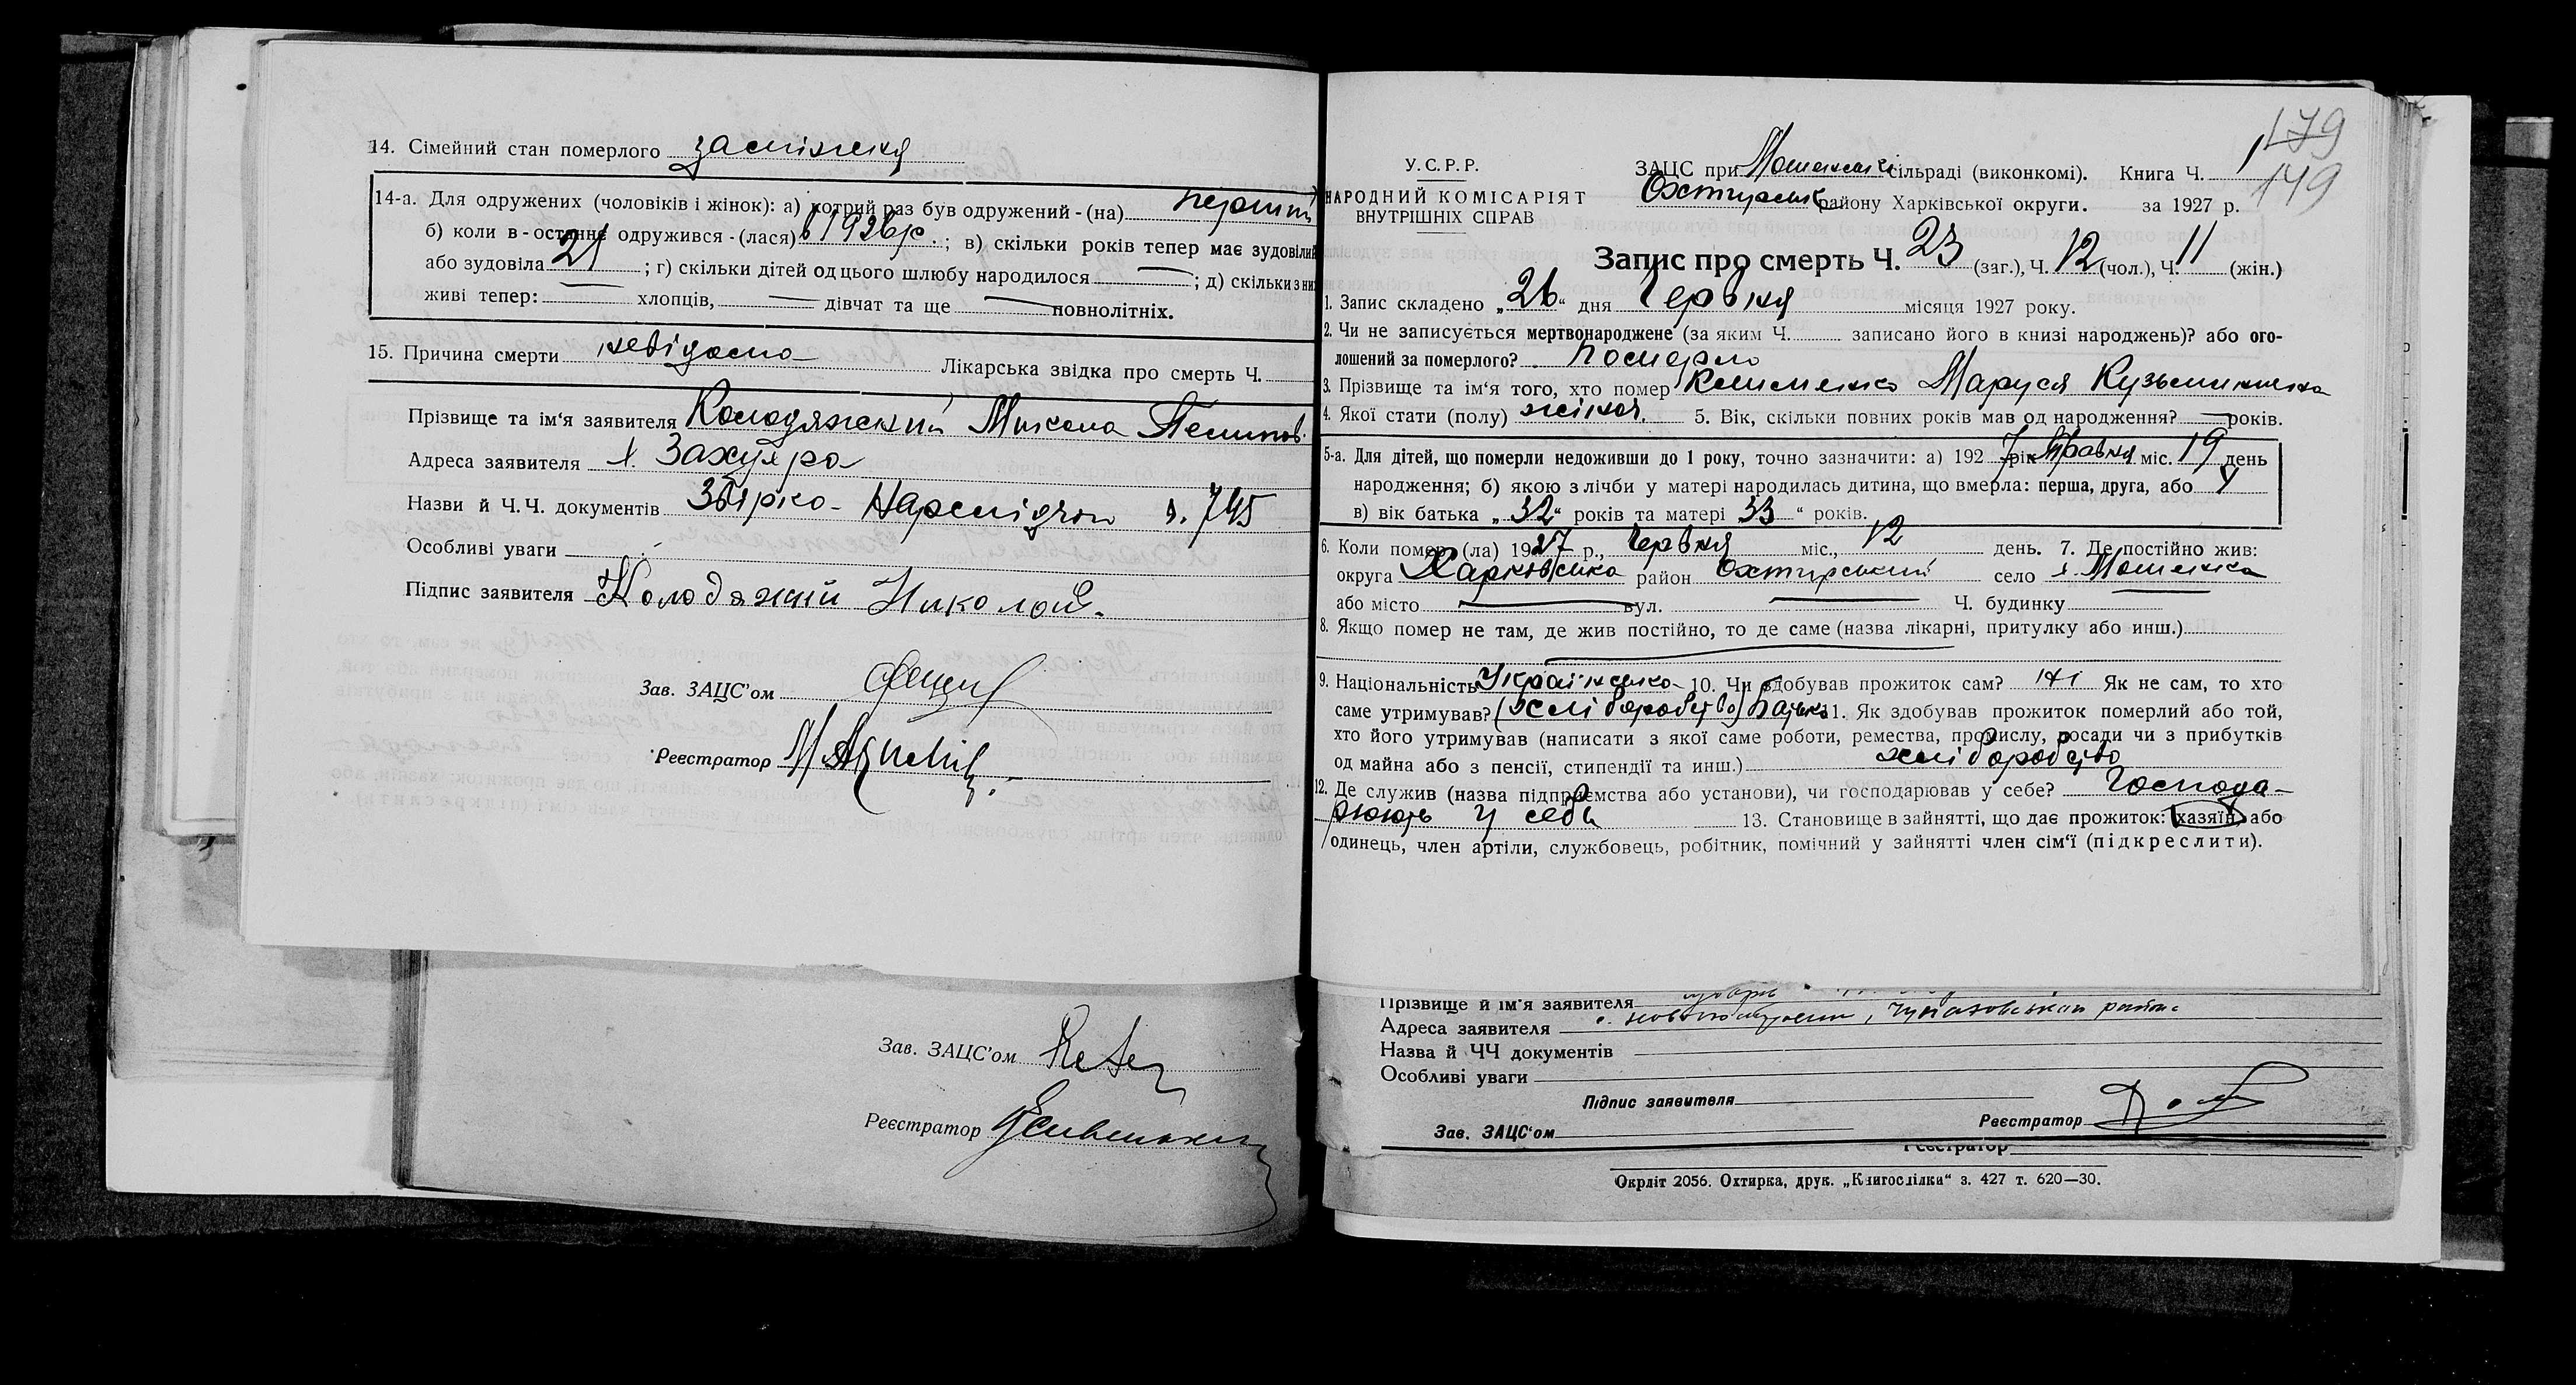 14. Сімейний стан померлого заміжня
14-а. Для одружених (чоловіків і жінок): а) котрий раз був одружений - (на) перший
б) коли в-останнє одружився - (лася) в 1926 р. ; в) скільки років тепер має зудовілий
або зудовіла 21 ; г) скільки дітей од цього шлюбу народилося — ; д) скільки з них
живі тепер: — хлопців, — дівчат та ще — повнолітніх.
15. Причина смерти невідома Лікарська звідка про смерть Ч.
Прізвище та ім'я заявителя Колодяжский Микола
Адреса заявителя х. Захуяра
Назви й Ч.Ч. документів 745
Особливі уваги
Підпис заявителя Колодяжний Николай.
Зав. ЗАЦС'ом
Реєстратор
Зав. ЗАЦС'ом
Реєстратор
179
149
У.С.Р.Р.
НАРОДНИЙ КОМІСАРІЯТ
ВНУТРІШНІХ СПРАВ
ЗАЦС при Мошенські сільраді (виконкомі). Книга Ч. 1
Охтирськ району Харківської округи. за 1927 р.
Запис про смерть Ч. 23 (заг.), Ч. 12 (чол.), Ч. 11 (жін.)
1. Запис складено „26“ дня Червня місяця 1927 року.
2. Чи не записується мертвонароджене (за яким Ч. записано його в книзі народжень)? або ого-
лошений за померлого? померло
3. Прізвище та ім'я того, хто помер Клименко Маруся Кузьминична
4. Якої стати (полу) жіноч. 5. Вік, скільки повних років мав од народження? — років.
5-а. Для дітей, що померли недоживши до 1 року, точно зазначити: а) 1927 рік Травня міс. 19 день
народження; б) якою з лічби у матері народилась дитина, що вмерла: перша, друга, або 4
в) вік батька „32“ років та матері 33“ років.
6. Коли помер (ла) 1927 р., Червня міс., 12 день. 7. Де постійно жив:
округа Харківська район Охтирський село х. Мошенка
або місто — вул. — Ч. будинку
8. Якщо помер не там, де жив постійно, то де саме (назва лікарні, притулку або инш.)
9. Національність Українська 10. Чи здобував прожиток сам? ні Як не сам, то хто
саме утримував? (хліборобство) батько 11. Як здобував прожиток померлий або той,
хто його утримував (написати з якої саме роботи, ремества, промислу, посади чи з прибутків
од майна або з пенсії, стипендії та инш.) хліборобство
12. Де служив (назва підприємства або установи), чи господарював у себе? Господа-
рюють у себе 13. Становище в зайнятті, що дає прожиток: хазяїн, або
одинець, член артіли, службовець, робітник, помічний у зайнятті член сім'ї (підкреслити).
Прізвище й ім'я заявителя
Адреса заявителя
Назва й ЧЧ документів
Особливі уваги
Підпис заявителя
Реєстратор
Зав. ЗАЦС'ом
Реєстратор
Окрліт 2056. Охтирка, друк. „Книгоспілка“ з. 427 т. 620—30.